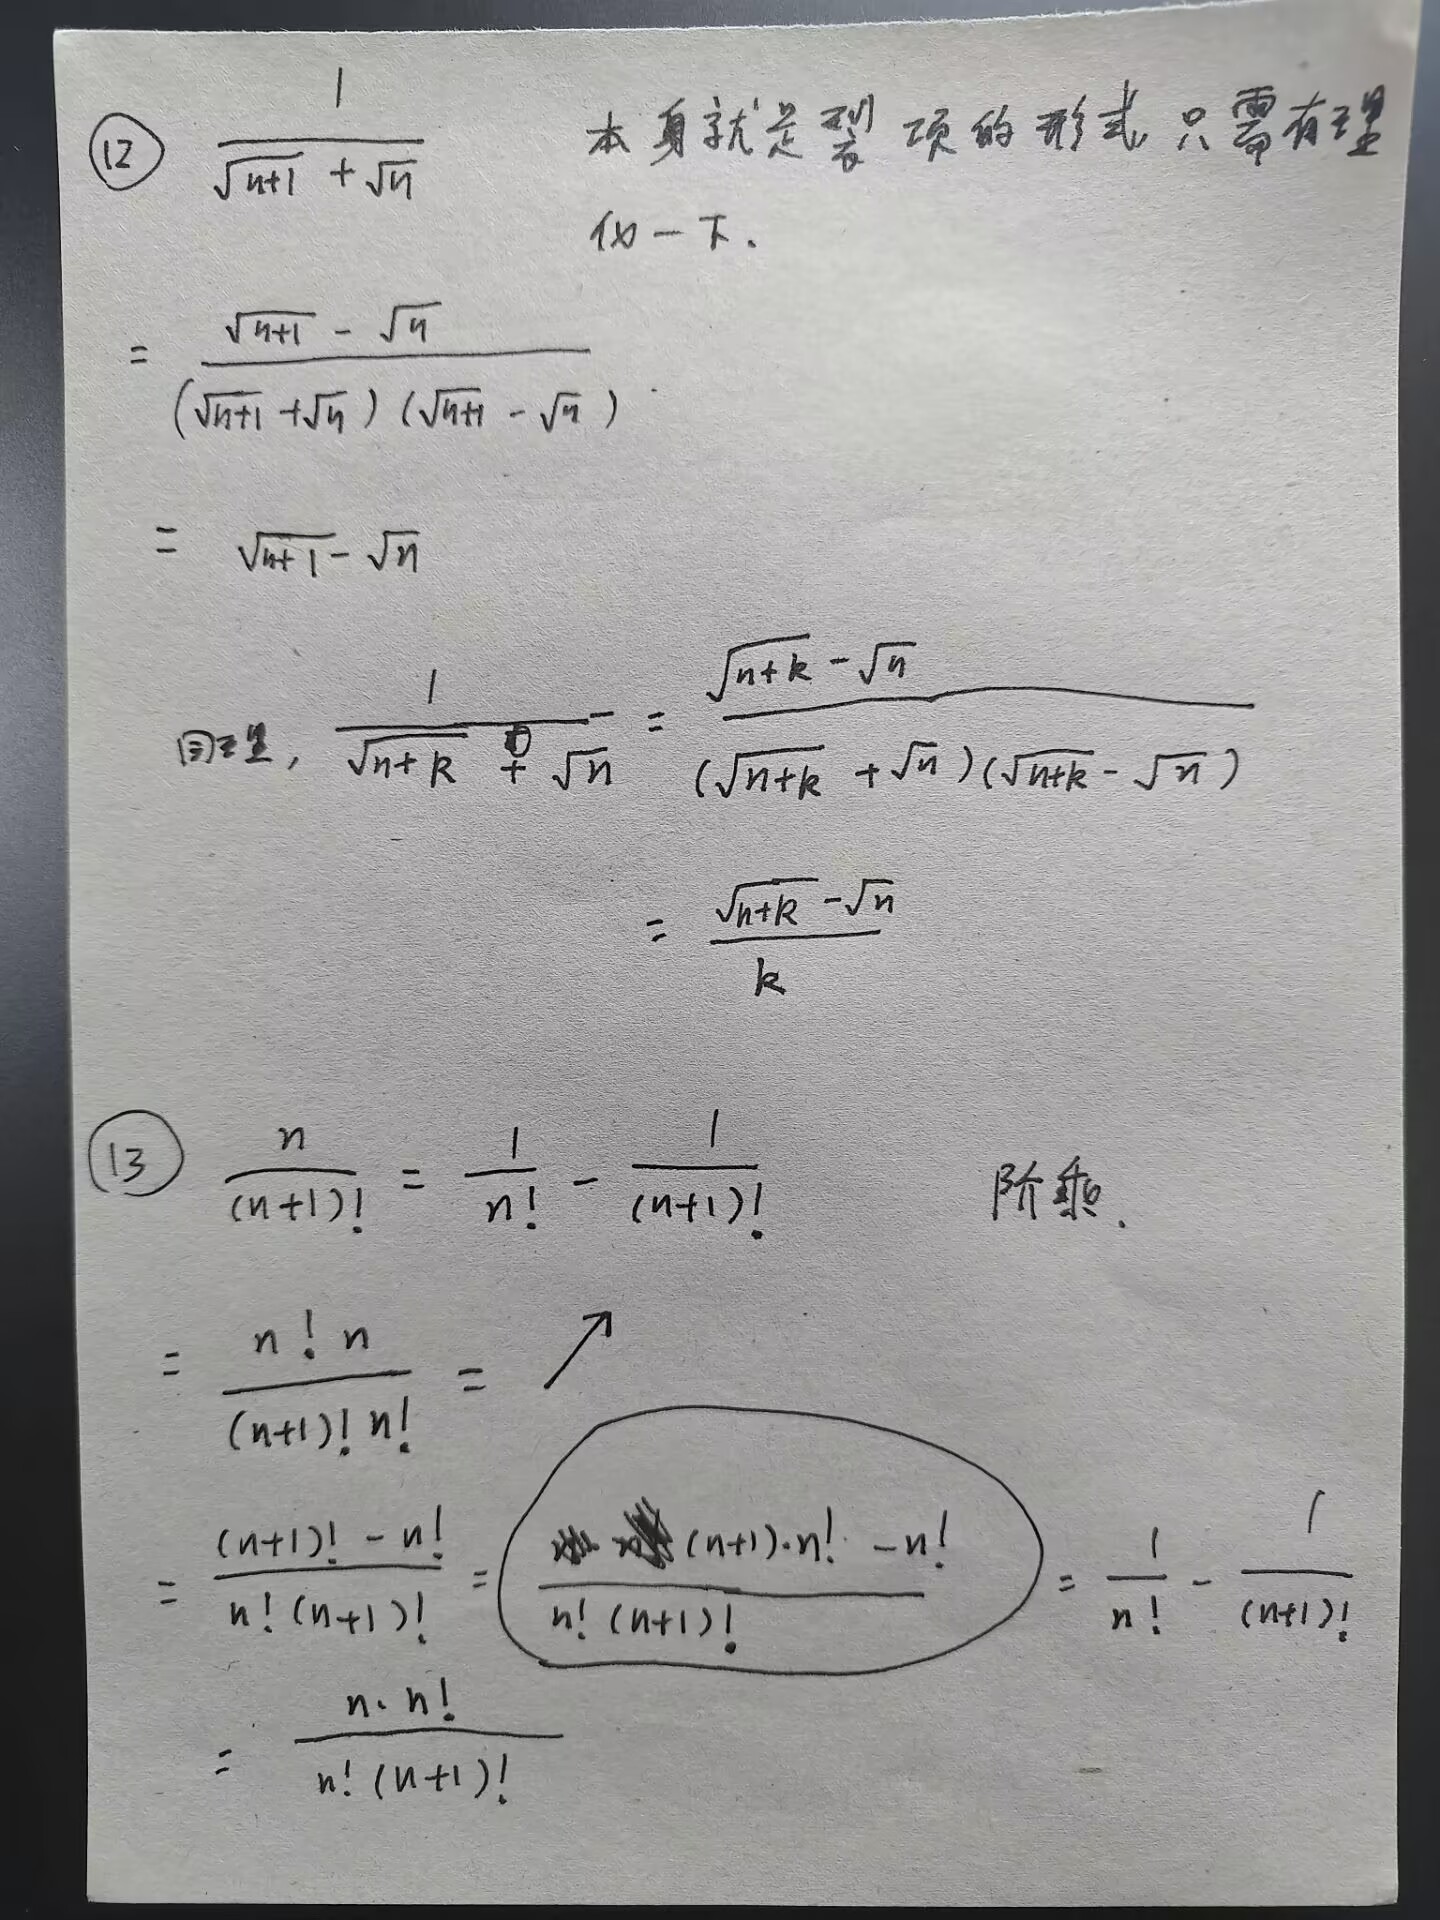 ⑫ 1/(√(n+1) + √n) 本身就是裂项的形式,只需有理
化一下.
= (√(n+1) - √n)/((√(n+1) + √n)(√(n+1) - √n))
= √(n+1) - √n
同理, 1/(√(n+k) + √n) = (√(n+k) - √n)/((√(n+k) + √n)(√(n+k) - √n))
= (√(n+k) - √n)/k
⑬ n/(n+1)! = 1/n! - 1/(n+1)! 阶乘.
= n! n/((n+1)! n!) = ↗
= ((n+1)! - n!)/(n! (n+1)!) = ((n+1)·n! - n!)/(n! (n+1)!) = 1/n! - 1/(n+1)!
= n·n!/(n! (n+1)!)